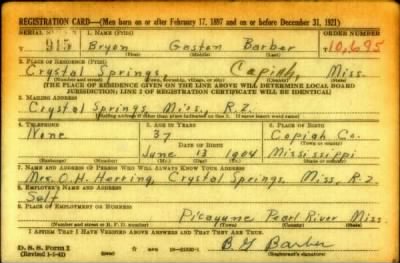 REGISTRATION CARD—(Men born on or after February 17, 1897 and on or before December 31, 1921)
SERIAL NUMBER 1. NAME (Print) ORDER NUMBER
915 Bryon Gaston Barber 10,695
2. PLACE OF RESIDENCE (Print)
Crystal Springs, Copiah, Miss.
(Number and street) (Town, township, village, or city) (County) (State)
(THE PLACE OF RESIDENCE GIVEN ON THE LINE ABOVE WILL DETERMINE LOCAL BOARD
JURISDICTION; LINE 2 OF REGISTRATION CERTIFICATE WILL BE IDENTICAL)
3. MAILING ADDRESS
Crystal Springs, Miss, R.2.
(Mailing address if other than place indicated on line 2. If same insert word same)
4. TELEPHONE 5. AGE IN YEARS 6. PLACE OF BIRTH
None 37 Copiah Co.
DATE OF BIRTH (Town or county)
June 13 1904 Mississippi
(Exchange) (Number) (Mo.) (Day) (Yr.) (State or country)
7. NAME AND ADDRESS OF PERSON WHO WILL ALWAYS KNOW YOUR ADDRESS
Mrs. O.H. Herring, Crystal Springs, Miss, R.2
8. EMPLOYER'S NAME AND ADDRESS
Self
9. PLACE OF EMPLOYMENT OR BUSINESS
Picayune Pearl River Miss.
(Number and street or R. F. D. number) (Town) (County) (State)
I AFFIRM THAT I HAVE VERIFIED ABOVE ANSWERS AND THAT THEY ARE TRUE.
D. S. S. Form 1
(Revised 1-1-42) (over) 16—21630-1
B G Barber
(Registrant's signature)